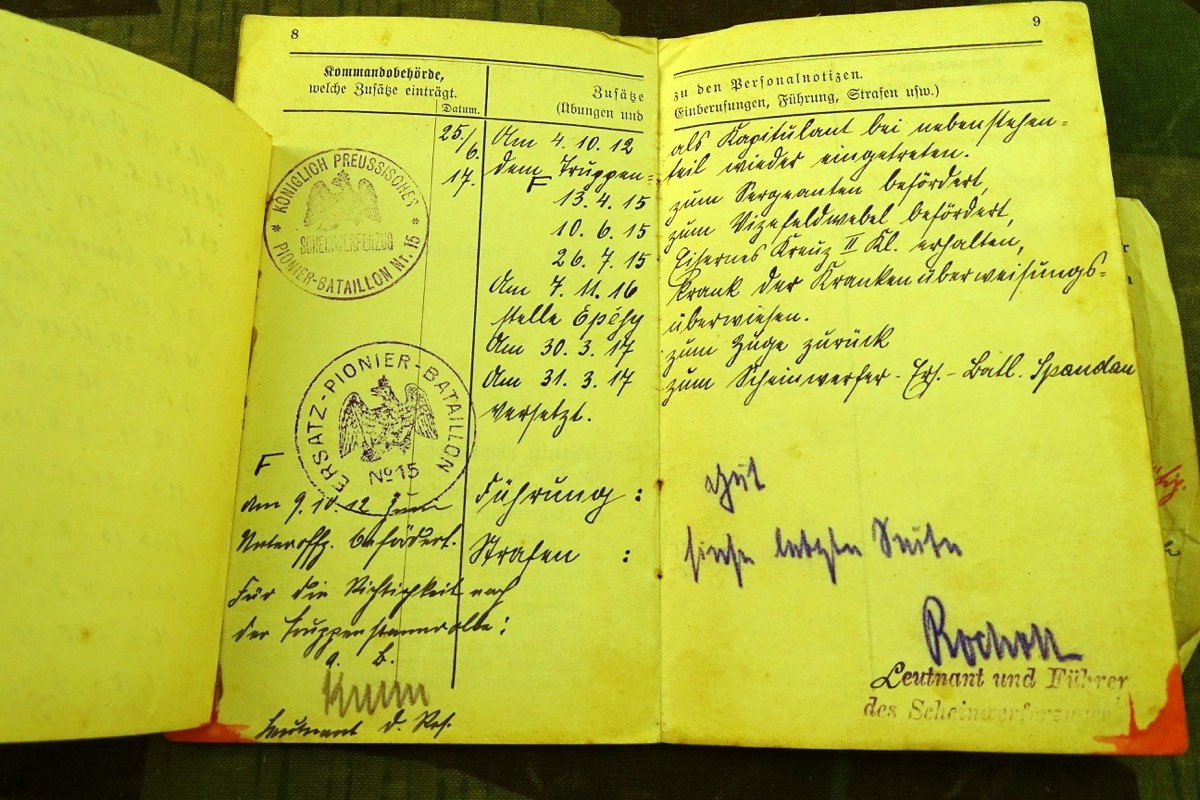 8
Kommandobehörde,
welche Zusätze einträgt.
Datum.
Zusätze
(Übungen und
KÖNIGLICH PREUSSISCHES
SCHEINWERFERZUG
* PIONIER-BATAILLON Nr. 15 *
25./
6.
17.
Am 4.10.12
dem Truppen=
F
13.4.15
10.6.15
26.7.15
Am 7.11.16
stelle Epéhy
Am 30.3.17
Am 31.3.17
versetzt.
ERSATZ-PIONIER-BATAILLON
No 15
F
Am 9.10.12 zum
Unteroffz. befördert.
Für die Richtigkeit nach
der Truppenstammrolle:
Führung:
Strafen:
Leutnant d. Res.
9
zu den Personalnotizen.
Einberufungen, Führung, Strafen usw.)
als Kapitulant bei nebenstehen=
teil wieder eingetreten.
zum Sergeanten befördert,
zum Vizefeldwebel befördert,
Eisernes Kreuz II Kl. erhalten,
krank der Krankenüberweisungs=
überwiesen.
zum Zuge zurück
zum Scheinwerfer-Ers.-Batl. Spandau
gut
siehe letzte Seite
Leutnant und Führer
des Scheinwerferzuges